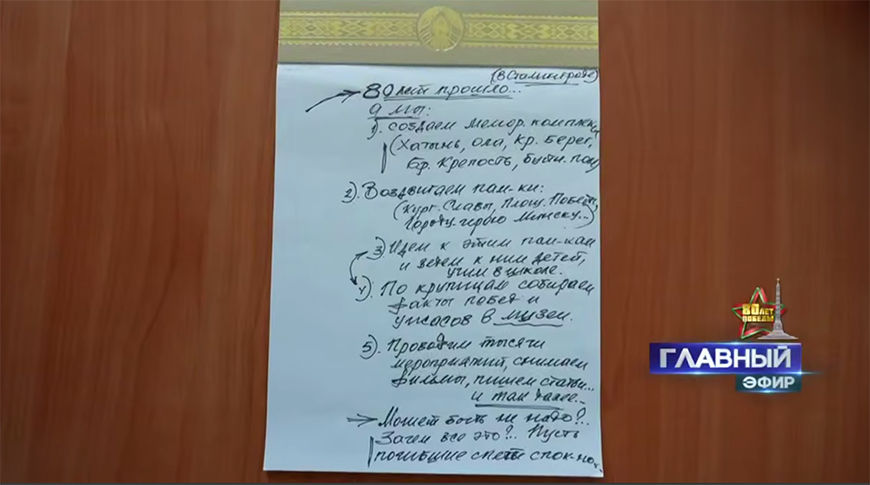 (В Сталинграде)
80 лет прошло...
а мы:
1). создаем мемор. комплексы
(Хатынь, Ола, Кр. Берег,
Бр. Крепость,
2). Воздвигаем пам-ки:
(Кург. Славы, Площ. Победы,
Городу-герою Минску...)
3) Идем к этим пам-кам
и ведем к ним детей,
учим в школе.
4). По крупицам собираем
факты побед и
ужасов в музеи.
5). Проводим тысячи
мероприятий, снимаем
фильмы, пишем статьи...
и так далее...
Может быть не надо?..
Зачем все это?.. Пусть
погибшие спят спок-но.
80 ЛЕТ
ПОБЕДЫ
ГЛАВНЫЙ
ЭФИР